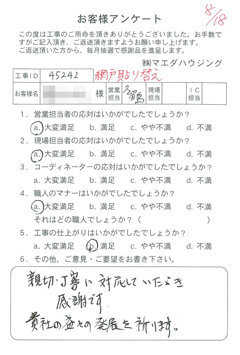 お客様アンケート
8/18
この度は工事のご用命を頂きありがとうございました。お手数で
すがご記入頂き、ご返送頂きますようお願い申し上げます。
ご返送頂いた方から、毎月抽選で感謝品を進呈します。
㈱マエダハウジング
工事ID 45242 網戸貼り替え
お客様名 様 営業担当 現場担当 IC担当
1．営業担当者の応対はいかがでしたでしょうか？
a.大変満足 b.満足 c.やや不満 d.不満
2．現場担当者の応対はいかがでしたでしょうか？
a.大変満足 b.満足 c.やや不満 d.不満
3．コーディネーターの応対はいかがでしたでしょうか？
a.大変満足 b.満足 c.やや不満 d.不満
4．職人のマナーはいかがでしたでしょうか？
a.大変満足 b.満足 c.やや不満 d.不満
それはどの職人でしょうか？（ ）
5．工事の仕上がりはいかがでしたでしょうか？
a.大変満足 b.満足 c.やや不満 d.不満
6．その他、ご意見・ご要望をお書き下さい。
親切・丁寧に対応していただき
感謝です
貴社の益々の発展を祈ります。